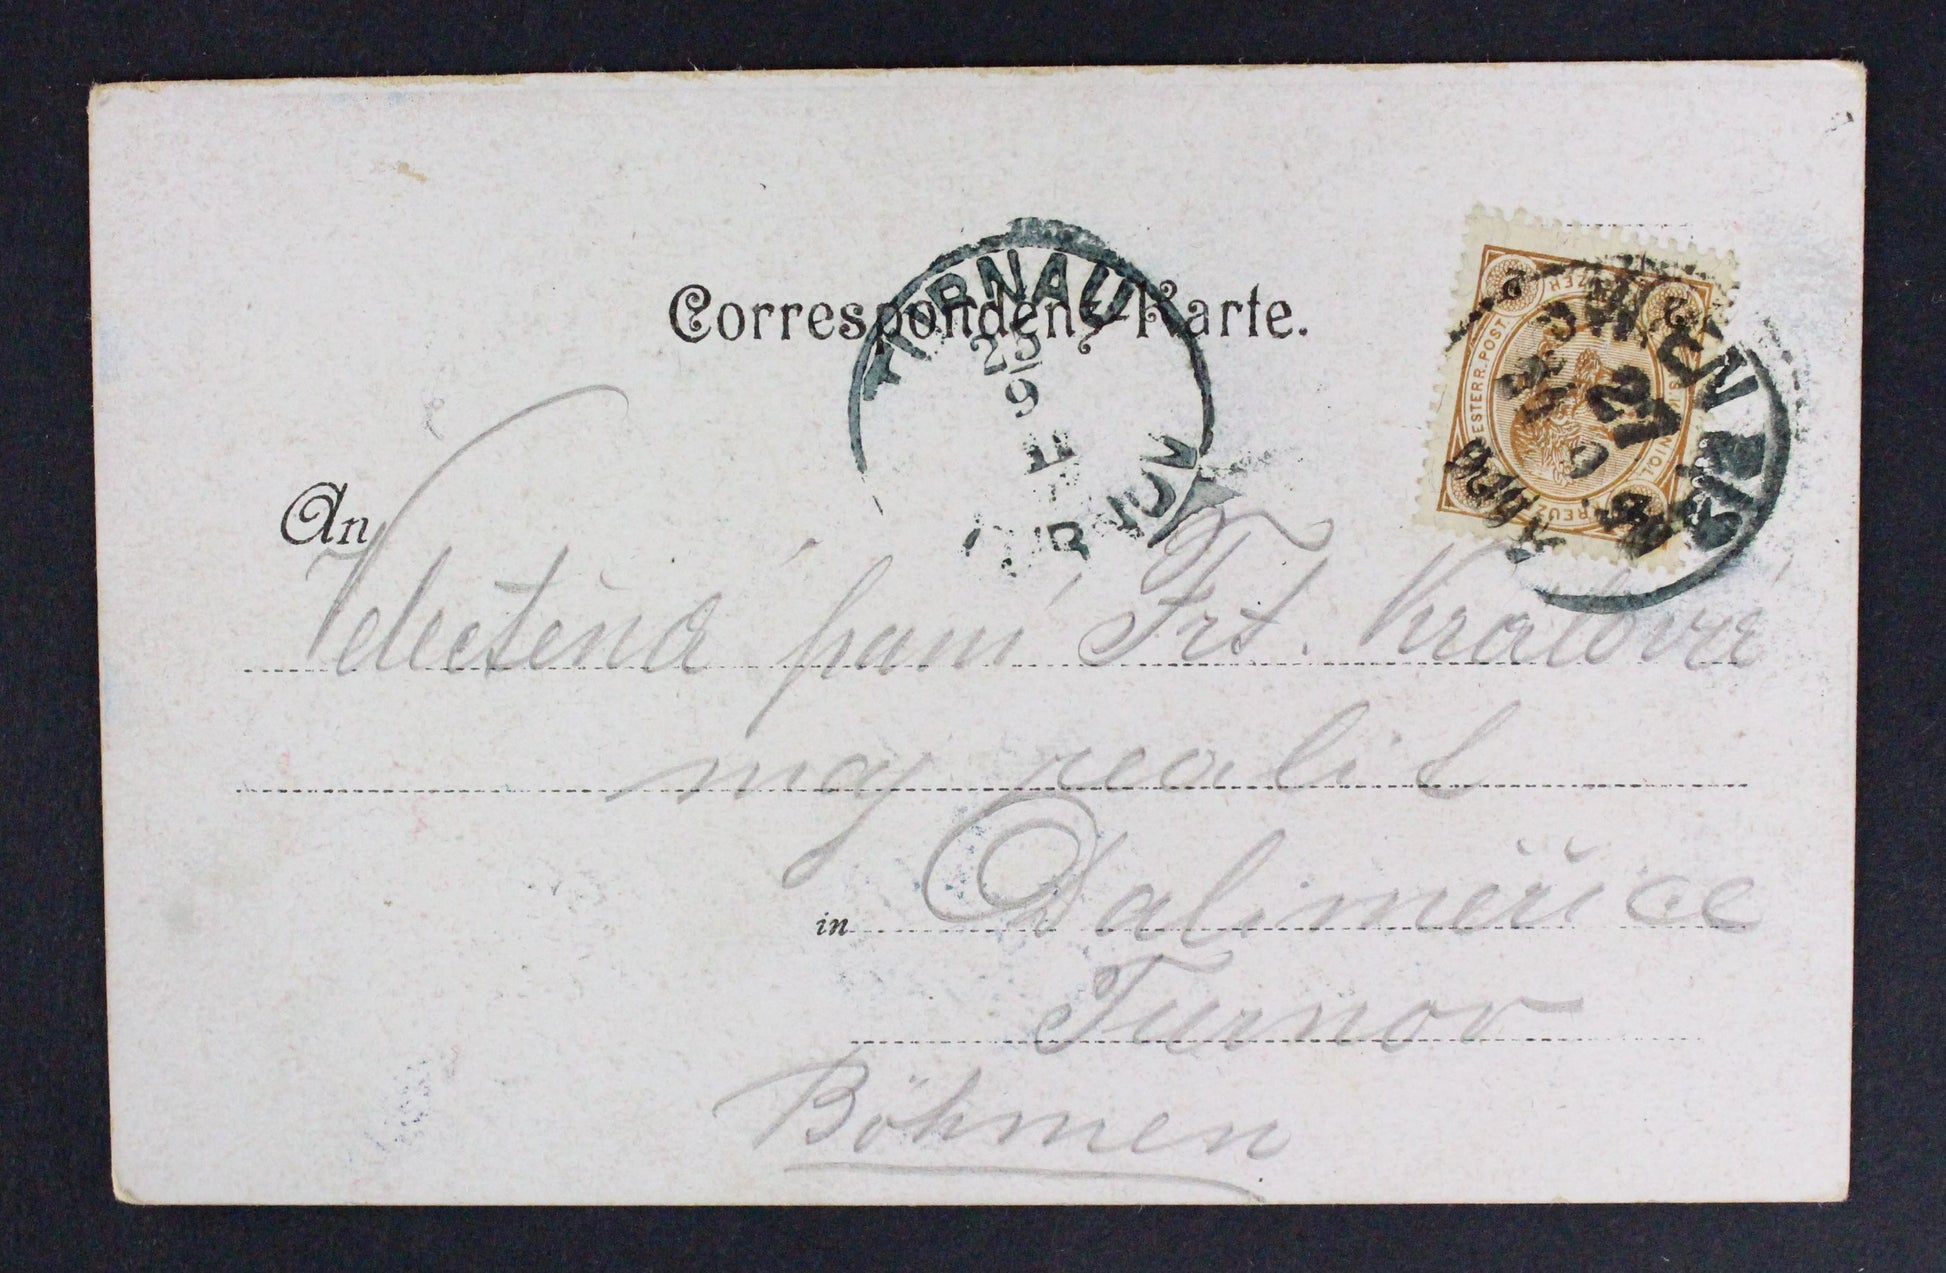 Correspondenz-Karte.
TURNAU
25
9
TURNOV
ESTERR. POST
2
An
Velectěná paní Frt. Kralové
maj realit
in Daliměřice
Turnov
Böhmen